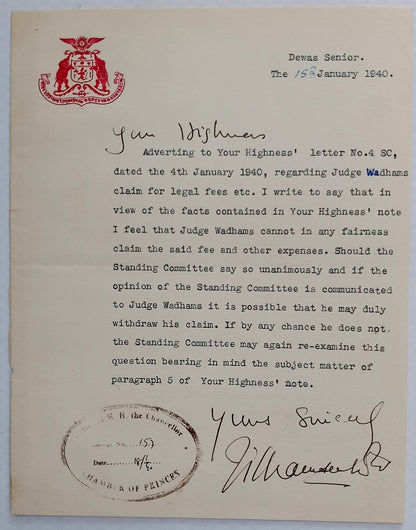 Dewas Senior.
The 15th January 1940.
Your Highness
Adverting to Your Highness' letter No.4 SC,
dated the 4th January 1940, regarding Judge Wadhams
claim for legal fees etc. I write to say that in
view of the facts contained in Your Highness' note
I feel that Judge Wadhams cannot in any fairness
claim the said fee and other expenses. Should the
Standing Committee say so unanimously and if the
opinion of the Standing Committee is communicated
to Judge Wadhams it is possible that he may duly
withdraw his claim. If by any chance he does not,
the Standing Committee may again re-examine this
question bearing in mind the subject matter of
paragraph 5 of Your Highness' note.
Yours Sincerely
H. H. the Chancellor
No. 157
Date 18/1
CHAMBER OF PRINCES